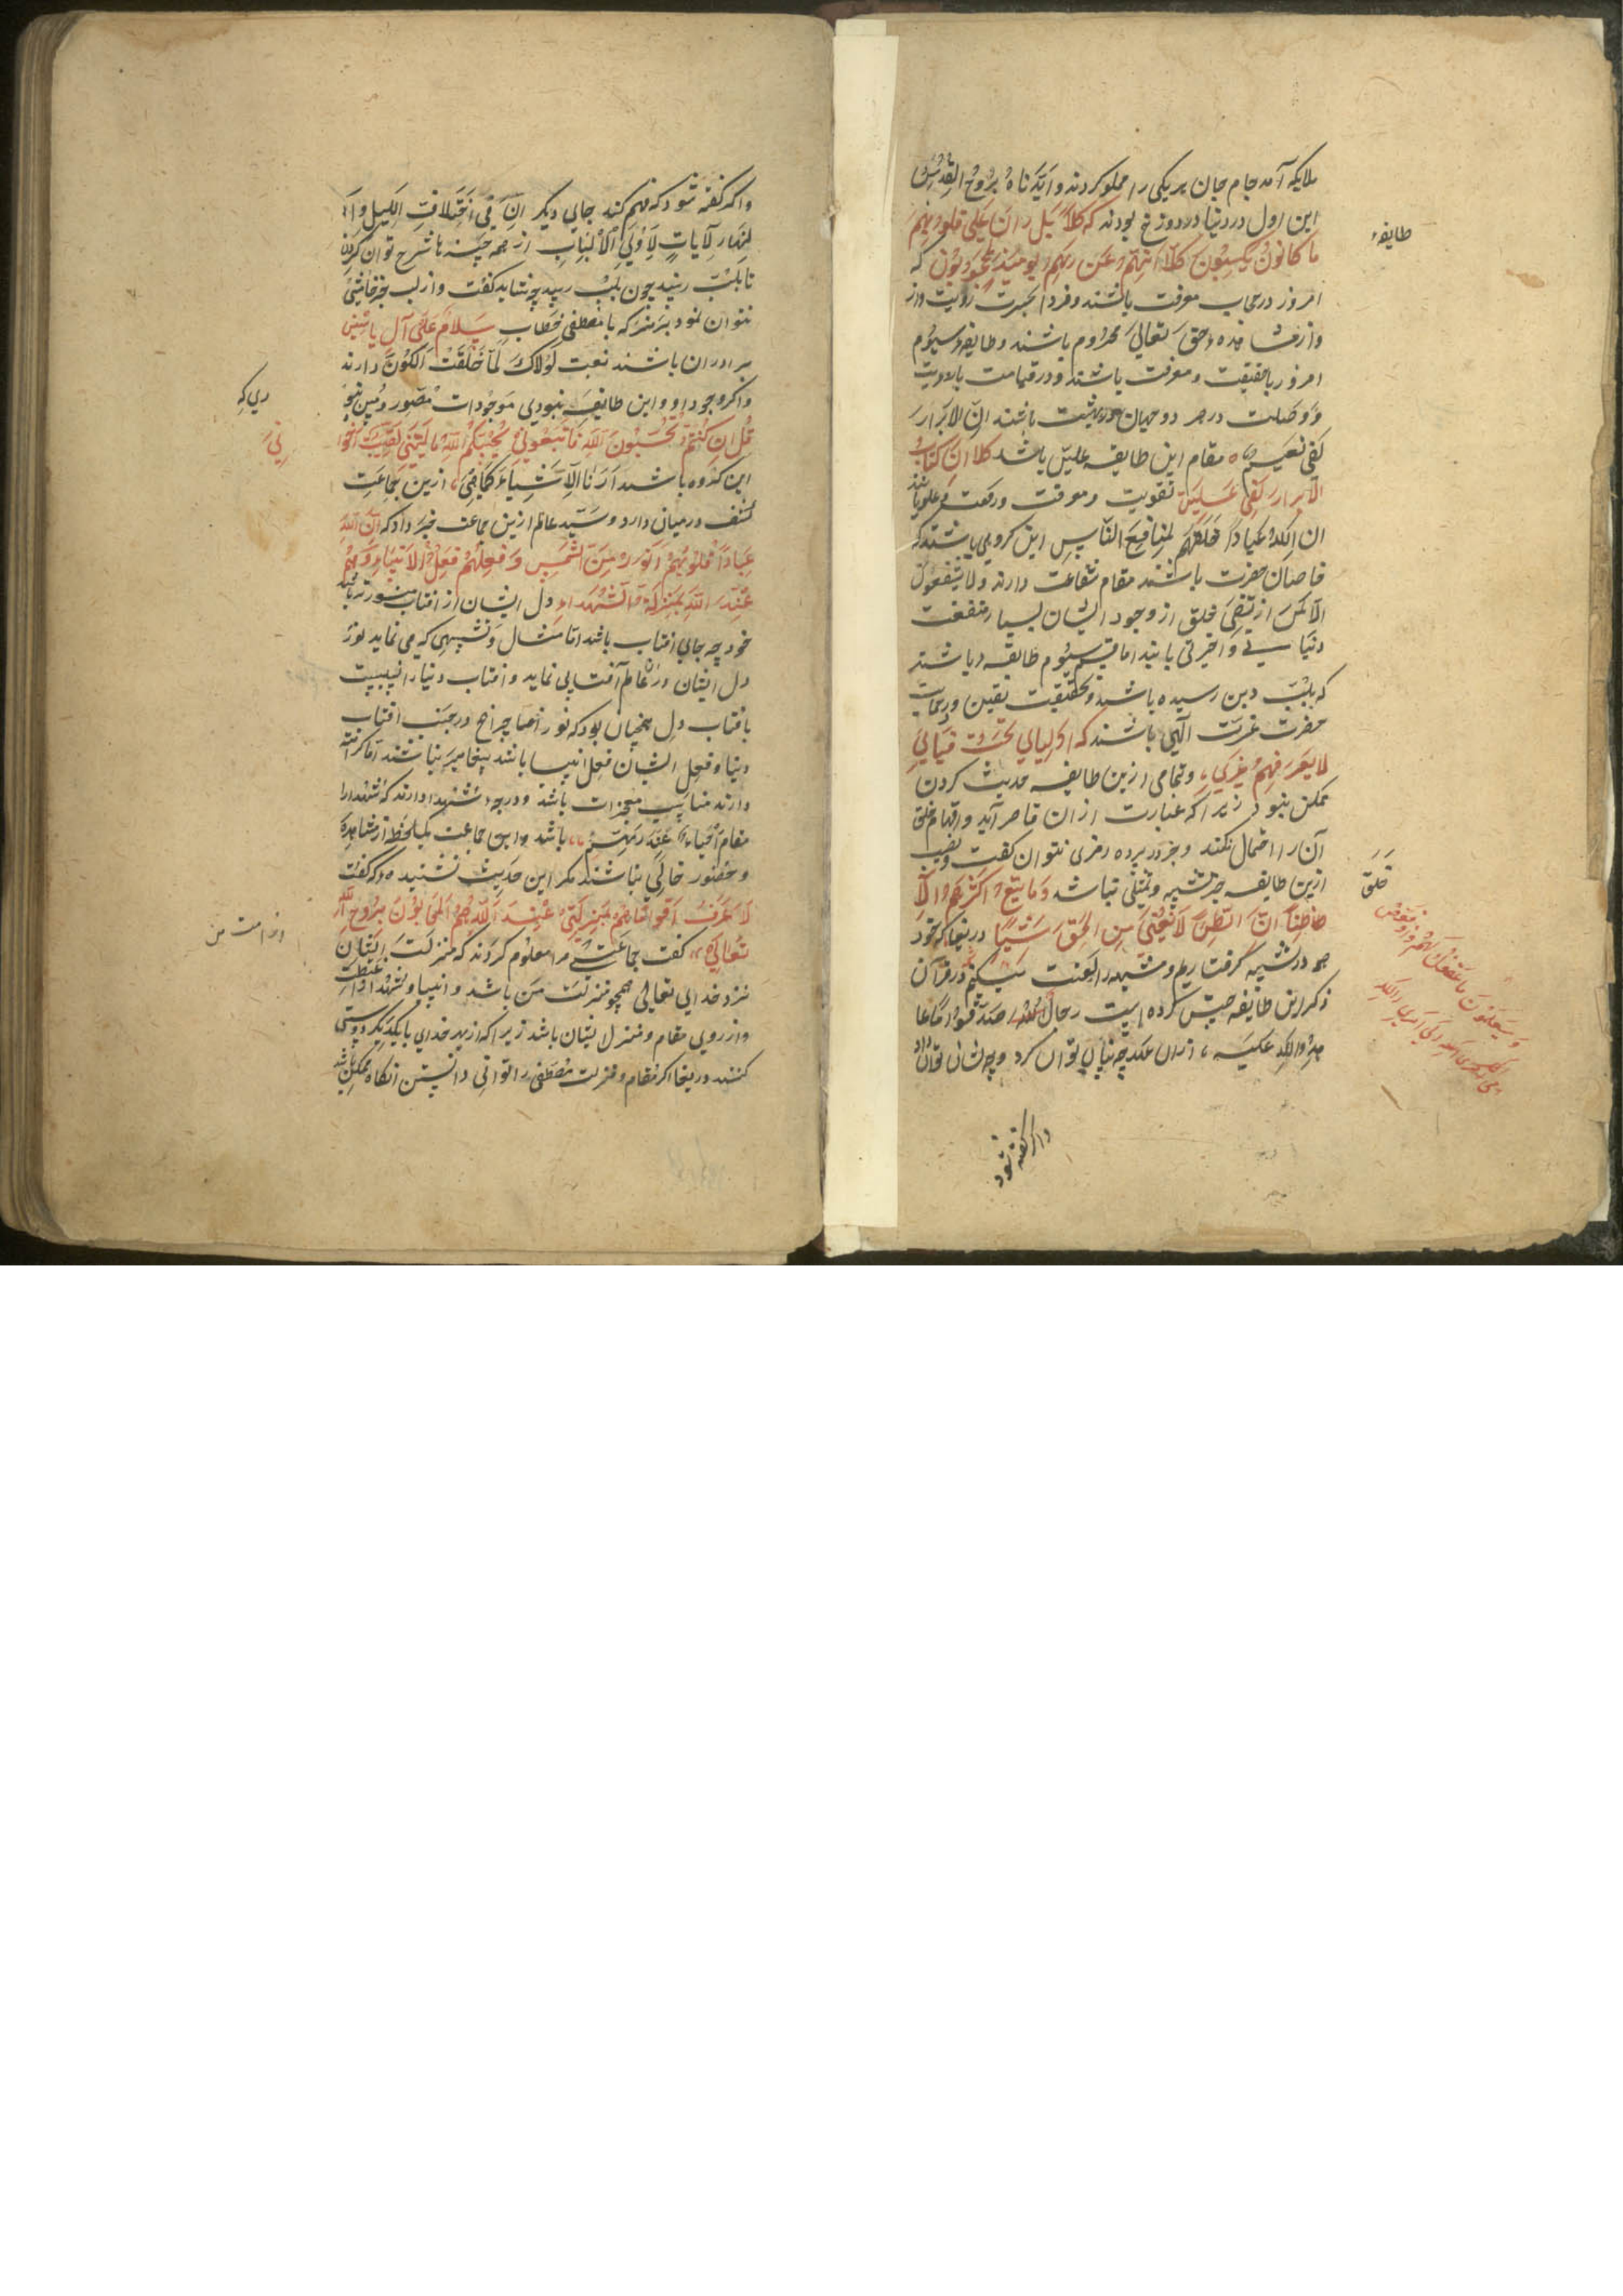 ملایکه آمد جام جان هر یکی را مملو کردند و ایدناه بروح القدس
این اول در دنیا در دوزخ بودند که کلا بل ران علی قلوبهم
ما کانوا یکسبون کلا انهم عن ربهم یومئذ لمحجوبون که
امروز در حجاب معرفت باشند و فردا بحسرت رویت و از
و از مشاهده حق تعالی محروم باشند و طایفه سیوم
امروز با حقیقت و معرفت باشند و در قیامت با رویت
و وصلت در هر دو جهان در بهشت باشند ان الابرار
لفی نعیم ه مقام این طایفه علیین باشد کلا ان کتاب
الابرار لفی علیین تقویت و معرفت و رفعت علو باشد
ان لله عبادا خلقهم لمنافع الناس این گروهی باشند که
خاصان حضرت باشند مقام شفاعت دارند و لا یشفعون
الا لمن ارتضی خلق از وجود ایشان بسیار منفعت
دنیا سے و آخرتی یابند اما قسم سیوم طایفه باشند
که بلب دین رسیده باشند و بحقیقت یقین و در حمایت
حضرت عزت الهی باشند که اولیایی تحت قبایی
لا یعرفهم غیری و تمامی ازین طایفه حدیث کردن
ممکن نبود زیرا که عبارت از آن قاصر آید و افهام خلق
آن را احتمال نکند و جز در پرده رمزی نتوان گفت و نصیب
ازین طایفه جز تشبیه و تمثلی نباشد و ما یتبع اکثرهم الا
ظنا ان الظن لا یغنی من الحق شیئا دریغا که خود
همه در تشبیه گرفتاریم و مشبهه را لعنت میکنیم در قرآن
ذکر این طایفه چیش کرده است رجال صدقوا ما عا
هدوا الله علیه ازان عهد چه بیان توان کرد و چه نشانی توان داد
طایفهء
خلق
واگر گفته شود
واگر گفته شود که فهم کند جایی دیگر ان فی اختلاف اللیل و ا
لنهار لآیات لاولی الالباب از همه چیزها شرح توان کردن
تا بلب رسید چون بلب رسید چه شاید گفت و از لب جز خامشی
نتوان نمود بنگر که با مصطفی خطاب سلام علی آل یاسین
برادران باشند نعت لولاک لما خلقت الکون دارند
واگر وجود او و این طایفه نبودی موجودات متصور و مبین نبو
قل ان کنتم تحبون الله فاتبعونی یحببکم الله یا لیتنی لقیت اخوا
این گروه باشند ارنا الاشیاء کما هی ازین جماعت
کشف درمیان دارد و سید عالم ازین جماعت خبر داد که ان لله
عبادا قلوبهم انور من الشمس و فعلهم فعل الانبیاء و هم
عند الله بمنزلة الشهداء دل ایشان از آفتاب منورتر باشد
خود چه جای آفتاب باشد اما مثال و تشبیهی که می نماید نور
دل ایشان در آن عالم آفتابی نماید و آفتاب دنیا را نسبت
با آفتاب دل همچنان بود که نور چراغ در جنب آفتاب
دنیا و فعل ایشان فعل انبیا باشد پیغامبر نباشند اما کرامت
دارند مناسب معجزات باشد و درجه شهدا دارند که شهدا را
مقام احیاء عند ربهم باشد و این جماعت یک لحظه از مشاهده
و حضور خالی نباشند مگر این حدیث نشنیده که گفت
لا عرف اقواما هم بمنزلتی عند الله هم المتحابون بروح الله
تعالی گفت جماعتی مرا معلوم کردند که منزلت ایشان
نزد خدای تعالی همچو منزلت من باشد و انبیا و شهدا را غبطت
و از روی مقام و منزل ایشان باشد زیرا که از بهر خدای با یکدیگر دوستی
کنند دریغا اگر مقام و منزلت مصطفی را توانی دانستن آنگاه ممکن باشد
دی که
نی